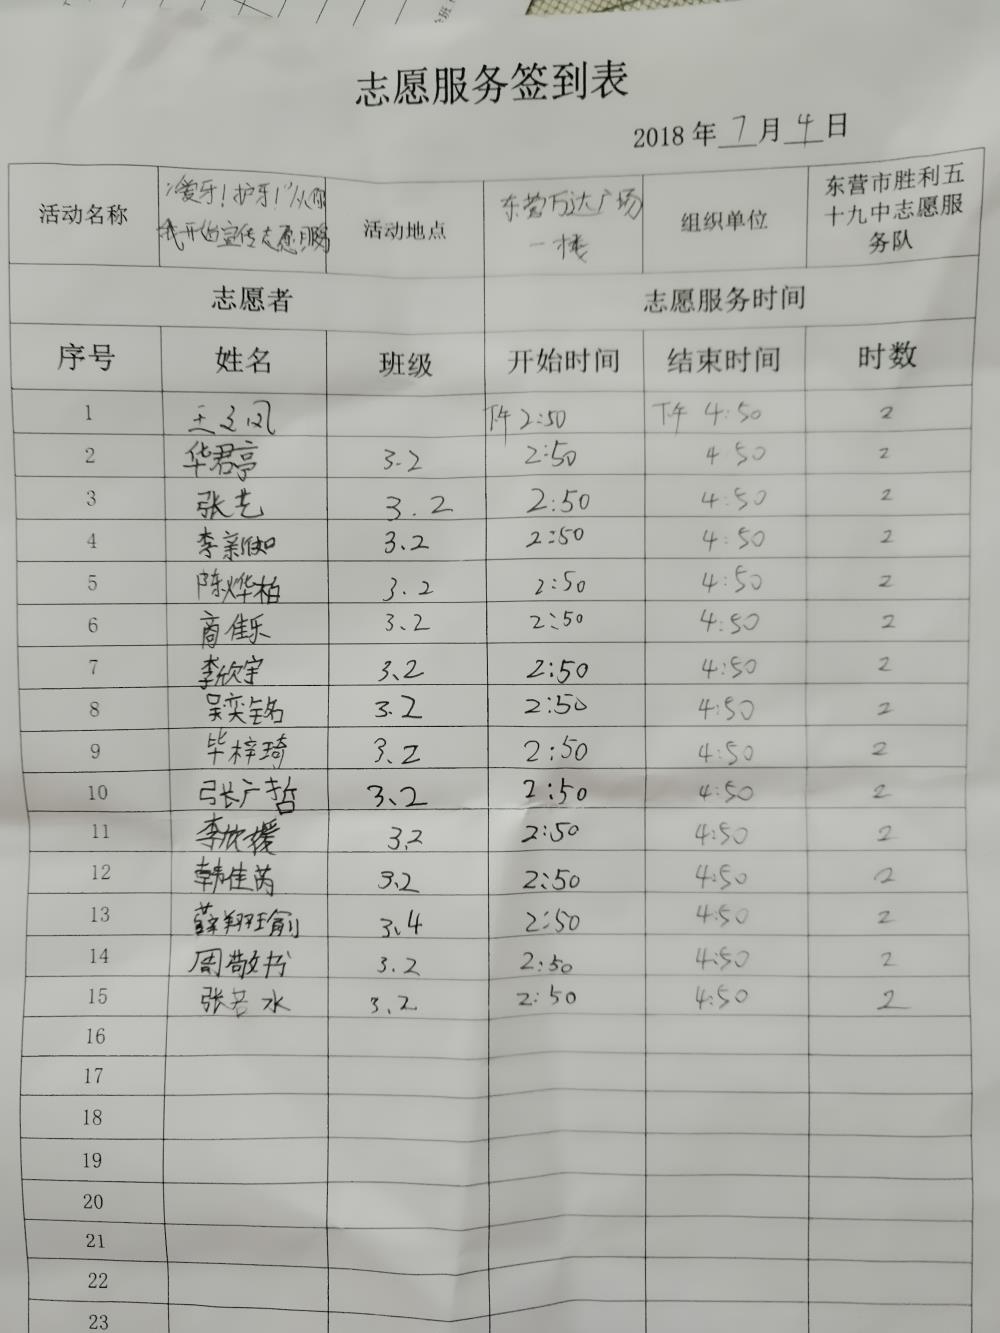 志愿服务签到表
2018年7月4日
活动名称 "爱牙!护牙!"从你我开始宣传志愿服务 活动地点 东营万达广场一楼 组织单位 东营市胜利五十九中志愿服务队
志愿者 志愿服务时间
序号 姓名 班级 开始时间 结束时间 时数
1 下午2:50 下午4:50 2
2 华君亭 3.2 2:50 4 50 2
3 张艺 3.2 2:50 4:50 2
4 李新知 3.2 2:50 4:50 2
5 陈烨柏 3.2 2:50 4:50 2
6 商佳乐 3.2 2:50 4:50 2
7 李欣宇 3.2 2:50 4:50 2
8 吴奕铭 3.2 2:50 4:50 2
9 毕梓琦 3.2 2:50 4:50 2
10 张广哲 3.2 2:50 4:50 2
11 李欣媛 3.2 2:50 4:50 2
12 韩佳芮 3.2 2:50 4:50 2
13 薛翔瑜 3.4 2:50 4:50 2
14 周敬书 3.2 2:50 4:50 2
15 张若水 3.2 2:50 4:50 2
16
17
18
19
20
21
22
23